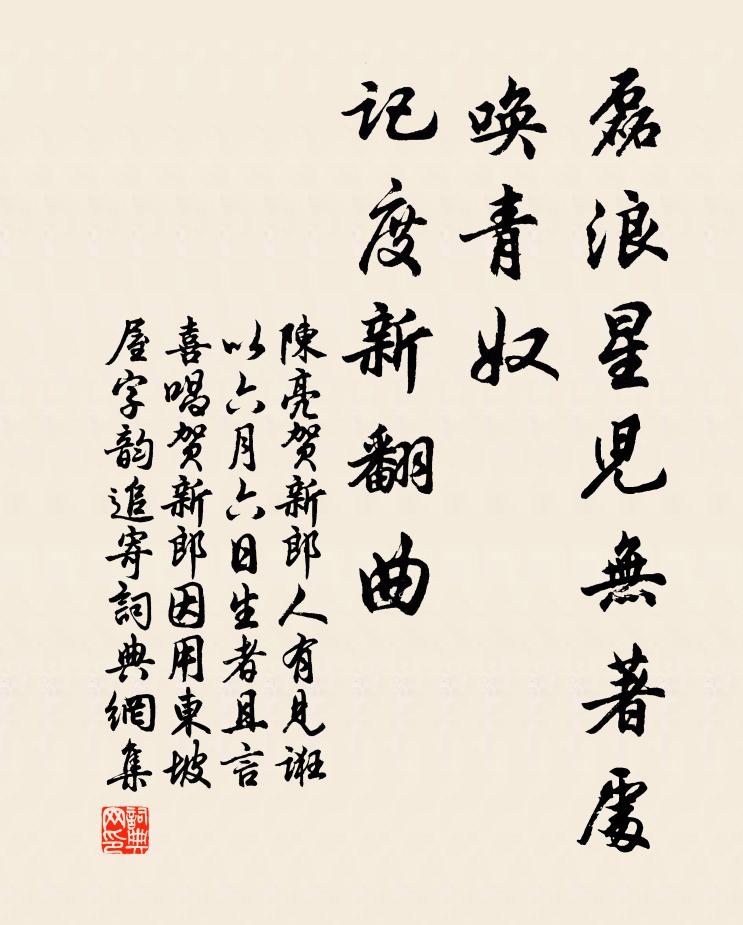 磊浪星児無著處
喚青奴
記度新翻曲
陳亮賀新郎人有見誑
以六月六日生者且言
喜唱賀新郎因用東坡
屋字韵追寄詞典網集
詞典
网印